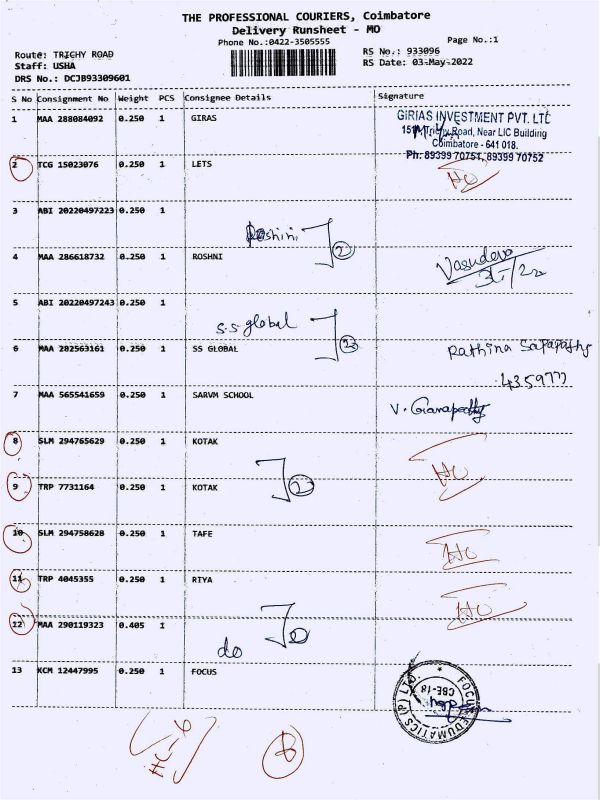 THE PROFESSIONAL COURIERS, Coimbatore
Delivery Runsheet - MO
Phone No.:0422-3505555
Page No.:1
Route: TRICHY ROAD
Staff: USHA
DRS No.: DCJB93309601
RS No.: 933096
RS Date: 03-May-2022
S No Consignment No Weight PCS Consignee Details Signature
1 MAA 288084092 0.250 1 GIRAS
GIRIAS INVESTMENT PVT. LTD
151, Trichy Road, Near LIC Building
Coimbatore - 641 018.
Ph: 89399 70751, 89399 70752
2 TCG 15023076 0.250 1 LETS HO
3 ABI 20220497223 0.250 1
Roshini 2
4 MAA 286618732 0.250 1 ROSHNI Vasudeva
5 ABI 20220497243 0.250 1
S.S global 2
6 MAA 282563161 0.250 1 SS GLOBAL Rathina Sapapathy
7 MAA 565541659 0.250 1 SARVM SCHOOL V. Ganapathy
8 SLM 294765629 0.250 1 KOTAK HO
9 TRP 7731164 0.250 1 KOTAK
2
10 SLM 294758628 0.250 1 TAFE HO
11 TRP 4045355 0.250 1 RIYA HO
12 MAA 290119323 0.405 1
do 2
13 KCM 12447995 0.250 1 FOCUS
FOCUS EDUMATICS (P) LTD.
CBE-18
HO-6